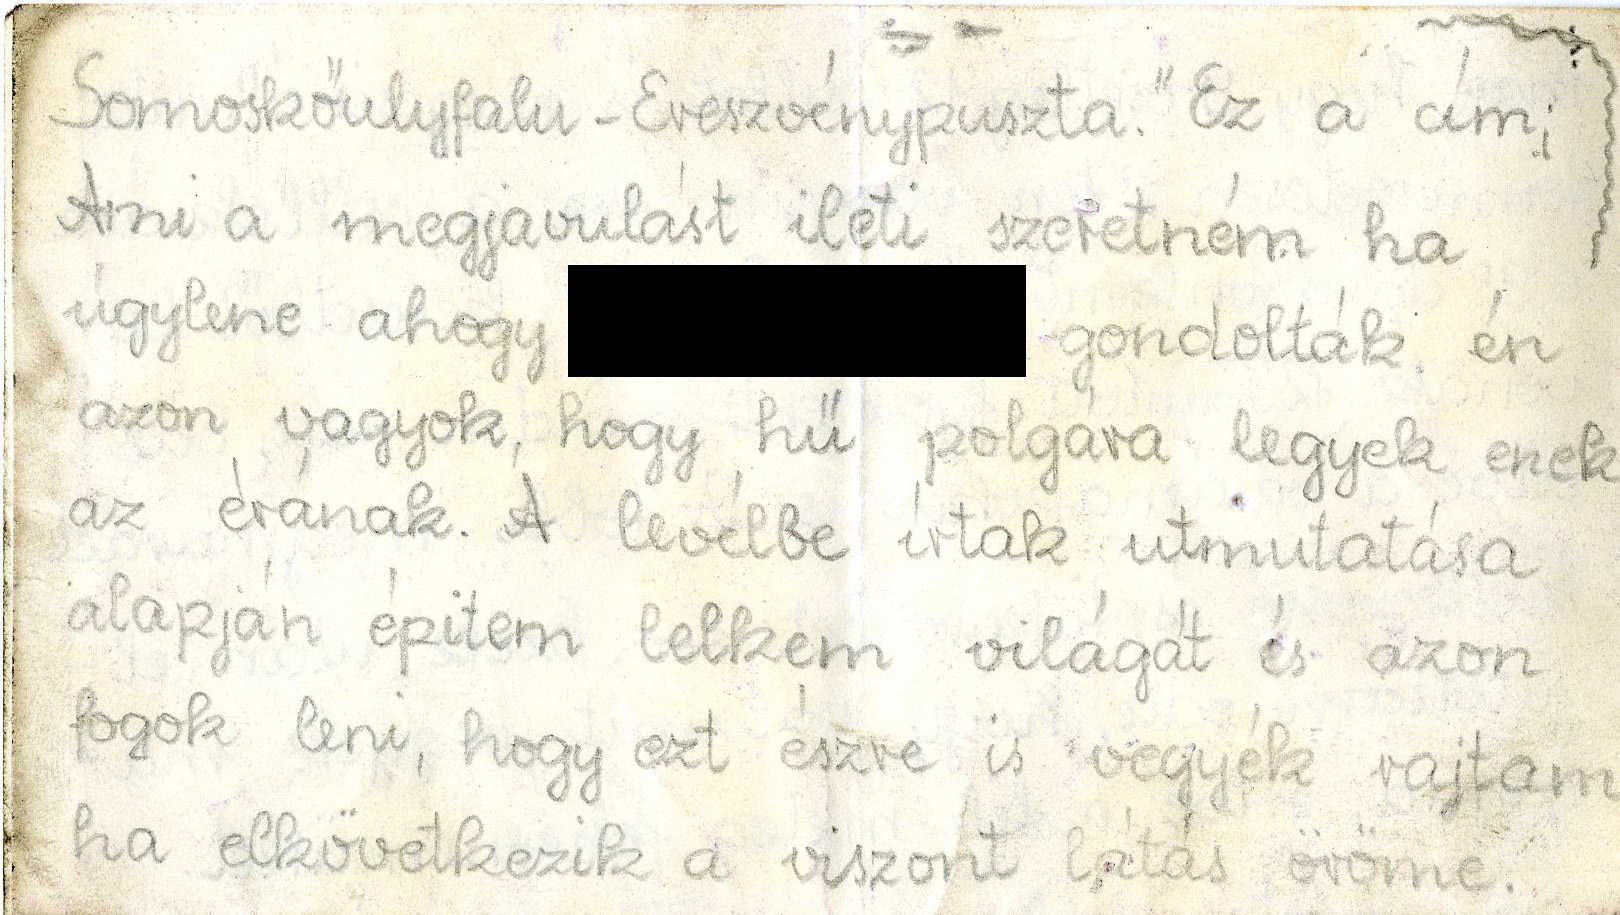 Somoskőulyfalu - Ereszvénypuszta." Ez a cím;
Ami a megjavulást illeti szeretném ha
úgylene ahogy gondolták én
azon vagyok, hogy hű polgára legyek enek
az érának. A levélbe írtak utmutatása
alapján épitem lelkem világát és azon
fogok leni, hogy ezt észre is vegyék rajtam
ha elkövetkezik a viszont látás öröme.